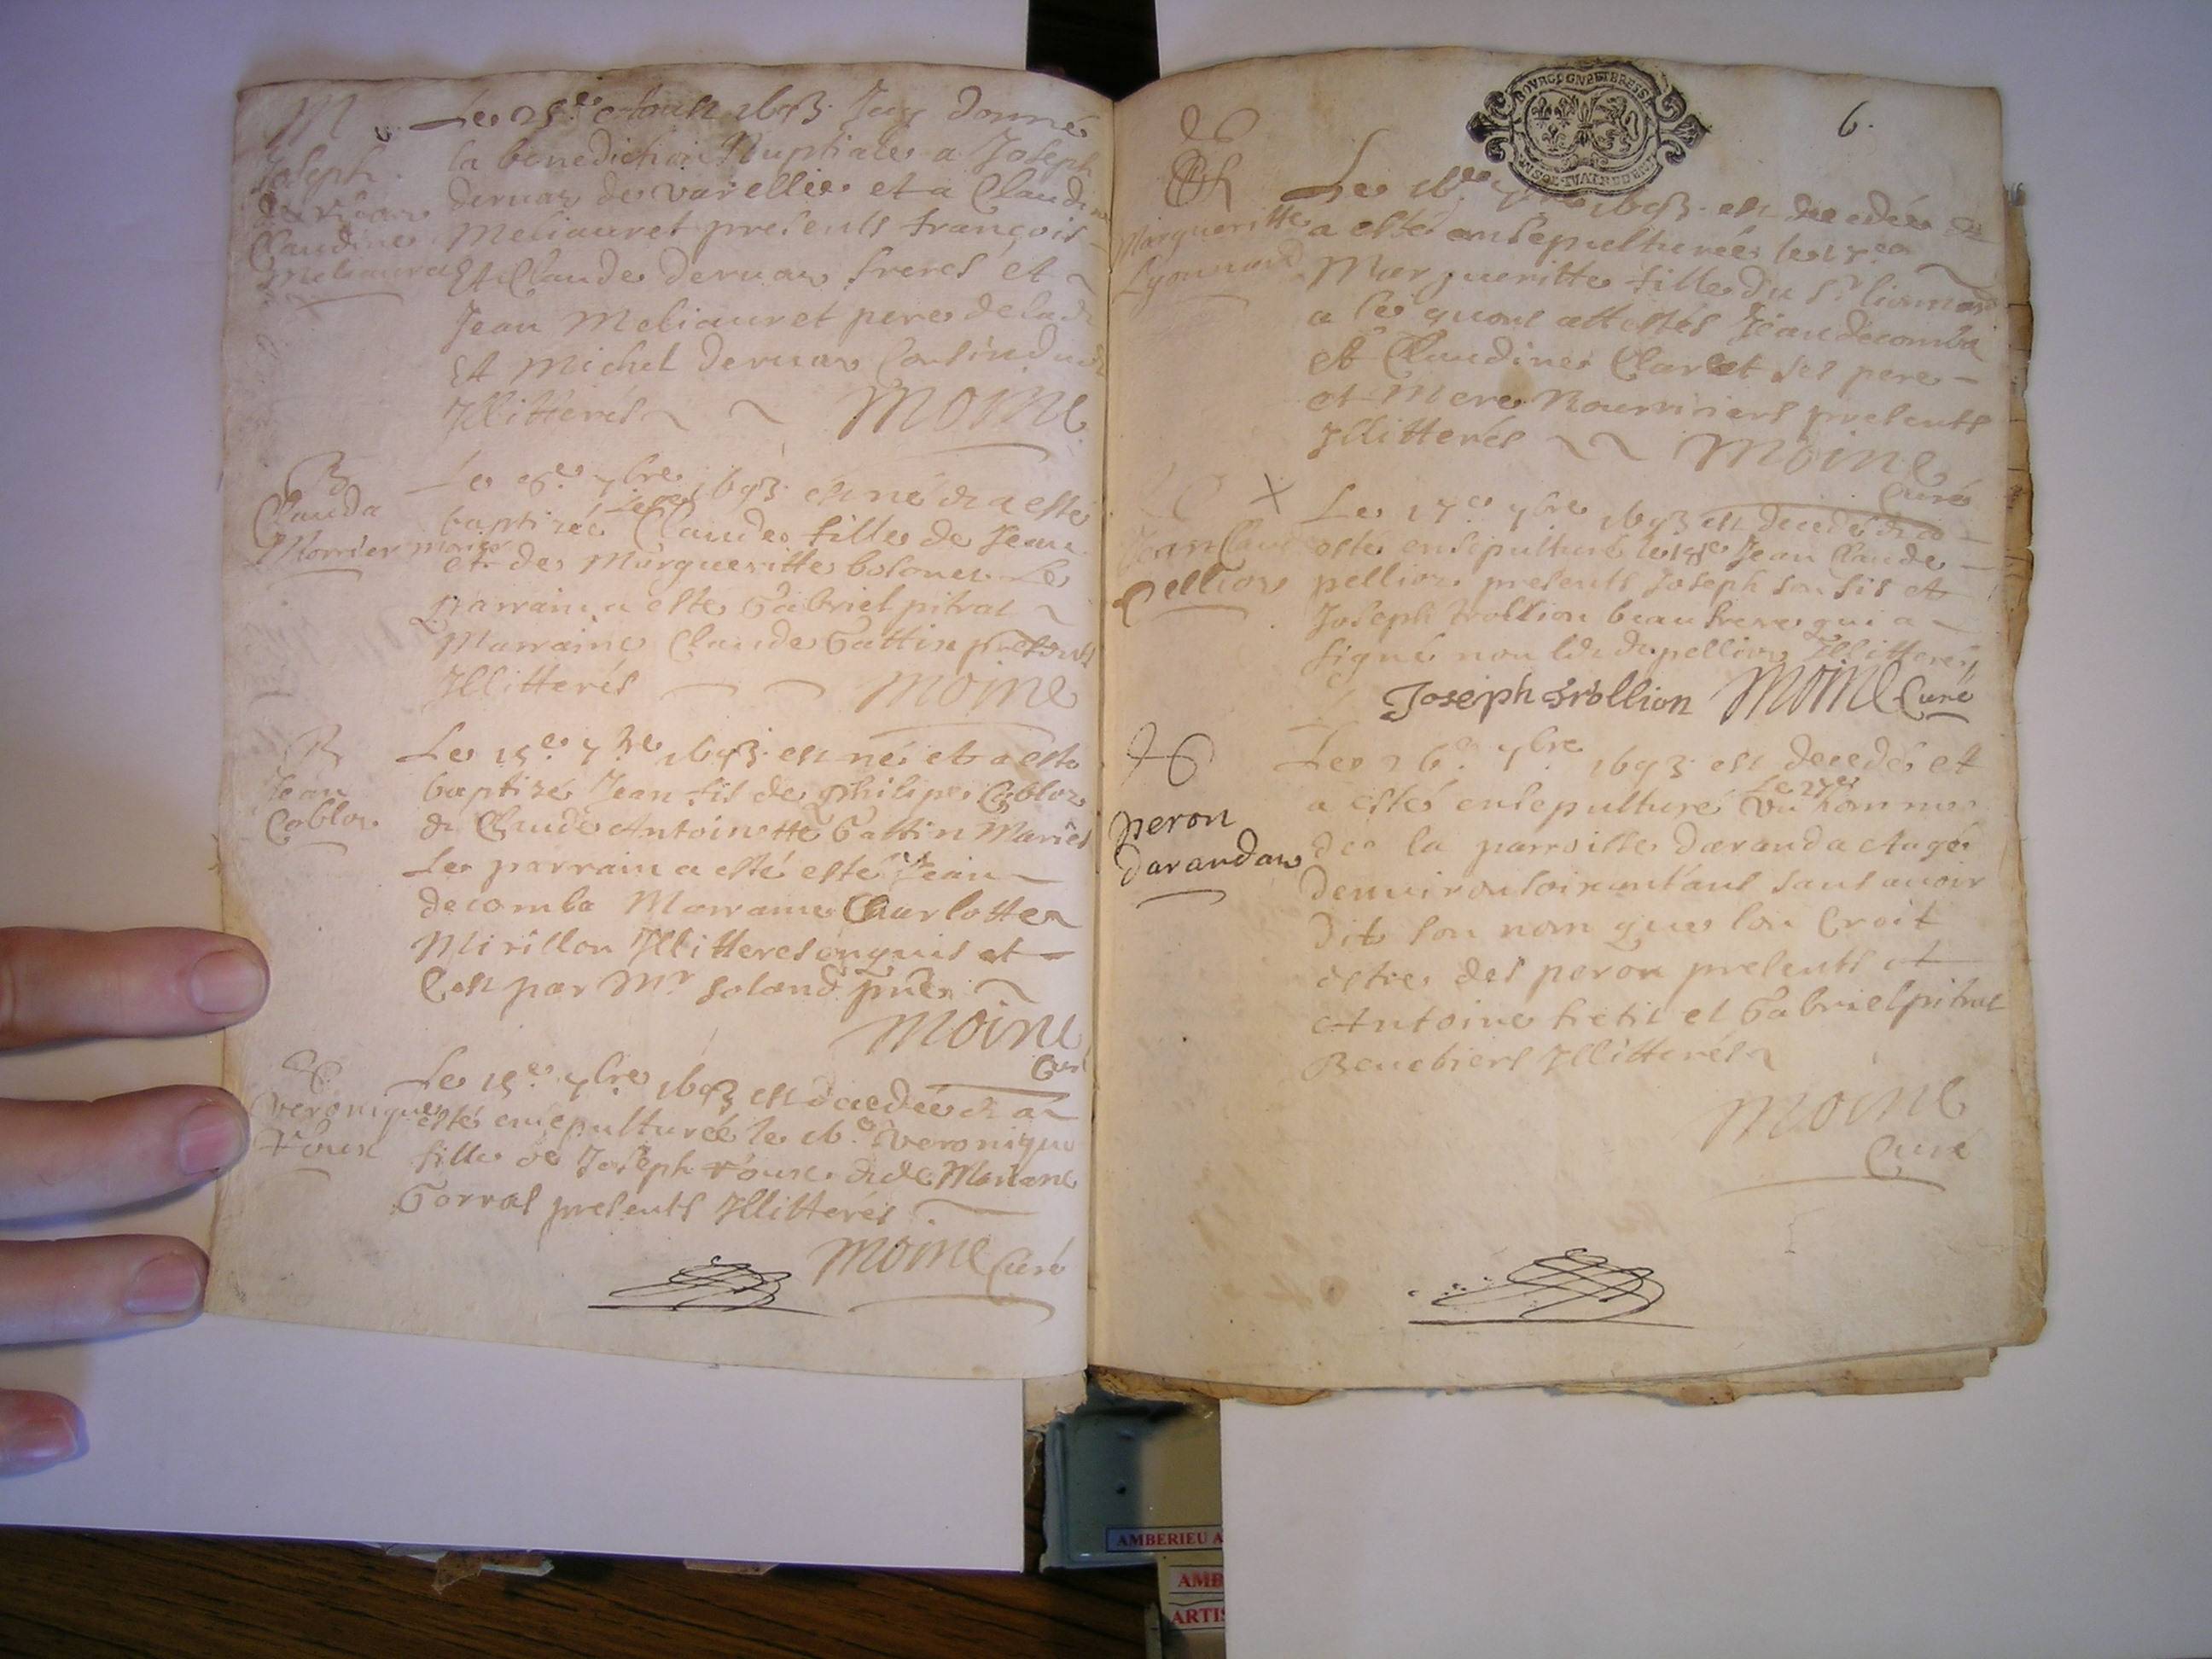 M
Joseph
dervar
Claudine
Meliauret
Le 25.e Aoust 1693 Jay donné
la benediction Nuptiale a Joseph
dervar de varellie et a Claudine
Meliauret presents françois
Et Claude dervar freres et
Jean Meliauret pere de lad
Et Michel dervar Cousin dud
Jllitterés Moine
B
Clauda
Morrier
Le 7bre 1693 est né & a esté
baptizée Claude fille de Jean
morier
et de Margueritte bolonet Le
parrain a esté Gabriel pitrat
Marraine Claude Gattin presents
Jllitterés Moine
B
Jean
Coblor
Le 15.e 7bre 1693 est né et a esté
baptizé Jean fils de philipe Coblor
& Claude Antoinette Gattin Mariés
Le parrain a esté esté Jean
decomba Marraine Charlotte
Mirillon Jllitteres enquis et
C'est par Mr goland
Moine
Curé
Veronique
roux
Le 15.e 7bre 1693 est decedée & a
esté ensepulturée le 16.e Veronique
fille de Joseph roux & de Mariane
Gorrat presents Jllitterés
Moine Curé
BOURGOGNE ET BRESSE
6.
Margueritte
Lyonnard
Le 16.e 7bre 1693 est decedée &
a esté ensepulturée le 17.e
Margueritte fille du Sr
a ce quont attestés Jean decomba
et Claudine Claret ses pere
et Mere Nourriciers presents
Jllitterés Moine
Curé
X
Jean Claude
pellior
Le 17.e 7bre 1693 est decedé & a
esté ensepulturé le Jean Claude
pellior presents Joseph son fis et
Joseph trollion beaufrere qui a
signé non led. pellior Jllitteré
Joseph trollion Moine Curé
peron
darandas
Le 26.e 7bre 1693 est decedé et
a esté ensepulturé Le 27e un homme
de la parroisse daranda Agé
denviron soixant'ans sans avoir
dit son nom que lon Croit
estre des peron presents et
Antoine tretil et Gabriel pitrat
Benebiers Jllitterés
Moine
Curé
AMBERIEU A
AMB
ARTIS